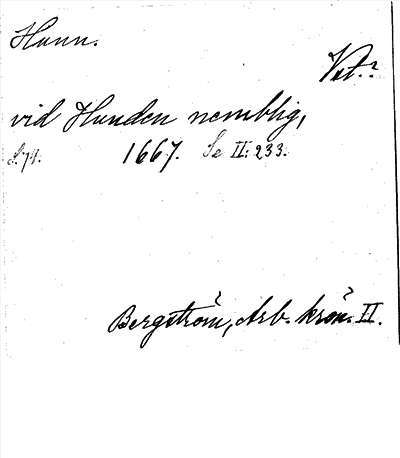 Hunn.
Vet.?
vid Hunden nemblig,
S. 74. 1667. Se II: 233.
Bergström, Arb. krön. II.